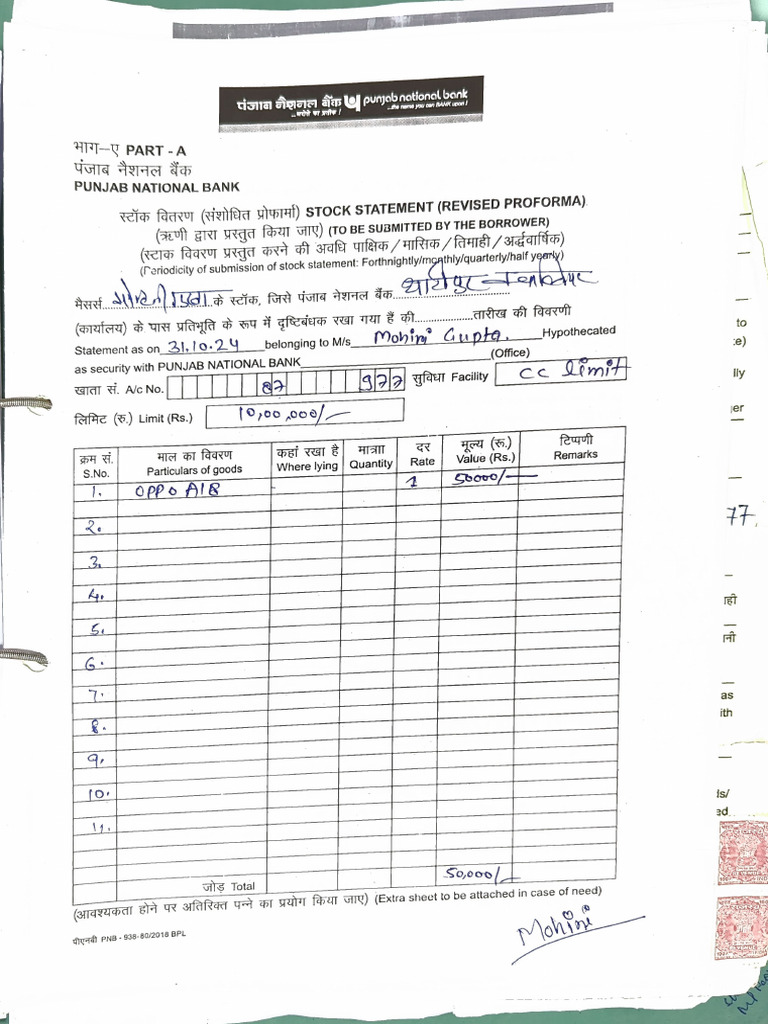 पंजाब नैशनल बैंक punjab national bank
...भरोसे का प्रतीक ! ...the name you can BANK upon !
भाग-ए PART - A
पंजाब नैशनल बैंक
PUNJAB NATIONAL BANK
स्टॉक वितरण (संशोधित प्रोफार्मा) STOCK STATEMENT (REVISED PROFORMA)
(ऋणी द्वारा प्रस्तुत किया जाए) (TO BE SUBMITTED BY THE BORROWER)
(स्टाक विवरण प्रस्तुत करने की अवधि पाक्षिक/मासिक/तिमाही/अर्द्धवार्षिक)
(Periodicity of submission of stock statement: Forthnightly/monthly/quarterly/half yearly)
मैसर्स गुप्ता के स्टॉक, जिसे पंजाब नेशनल बैंक थाटीपुर
(कार्यालय) के पास प्रतिभूति के रूप में दृष्टिबंधक रखा गया हैं की तारीख की विवरणी
Statement as on 31.10.24 belonging to M/s Mohini Gupta. Hypothecated
as security with PUNJAB NATIONAL BANK (Office)
खाता सं. A/c No. 87 977 सुविधा Facility CC limit
लिमिट (रु.) Limit (Rs.) 10,00,000/-
क्रम सं. माल का विवरण कहां रखा है मात्राा दर मूल्य (रू.) टिप्पणी
S.No. Particulars of goods Where lying Quantity Rate Value (Rs.) Remarks
1. OPPO A18 1 50000/-
2.
3.
4.
5.
6.
7.
8.
9.
10.
11.
जोड़ Total 50,000/-
(आवश्यकता होने पर अतिरिक्त पन्ने का प्रयोग किया जाए) (Extra sheet to be attached in case of need)
Mohini
पीएनबी PNB - 938-80/2018 BPL
to
lly
77,
as
ith